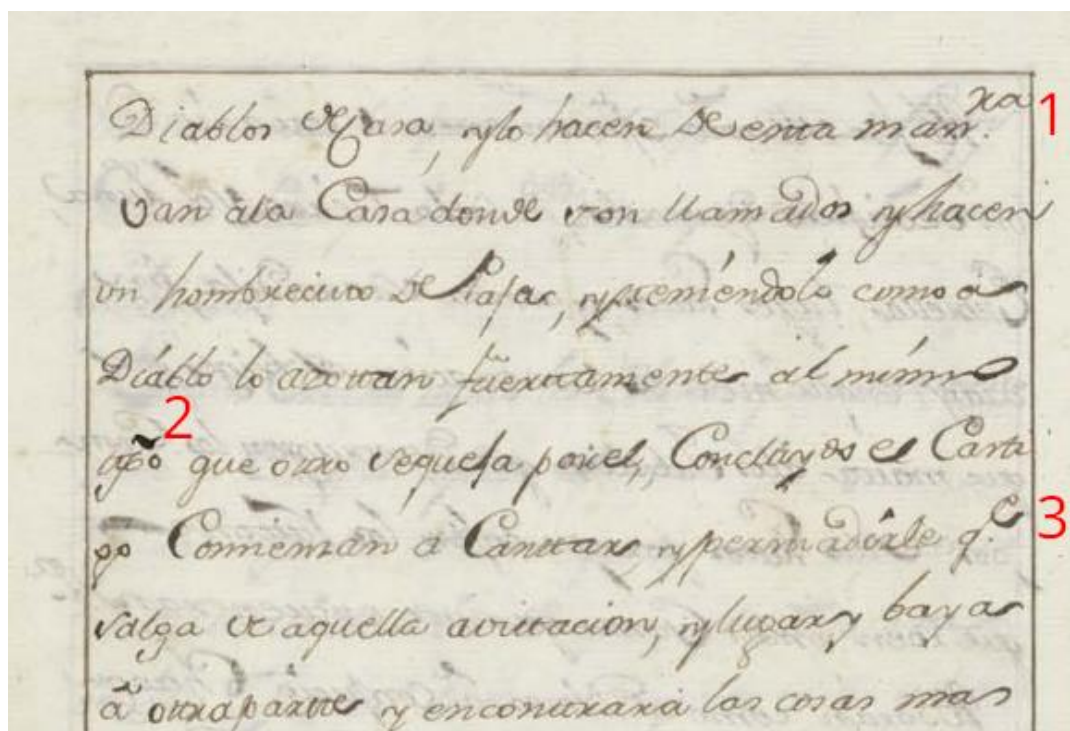 Diablos de Casa, y lo hacen de esta man.ra 1
Van a la Casa donde son llamados y hacen
un hombrecito de Paja, y teniéndolo como a
Diablo lo azotan fuertamente al mismo
tpõ que otro se queja por el, Concluydo el Casti
2
go Comiensan a Cantar, y persuadirle q.e 3
salga de aquella avitacion, y lugar y baya
â otra parte y encontrara las cosas mas